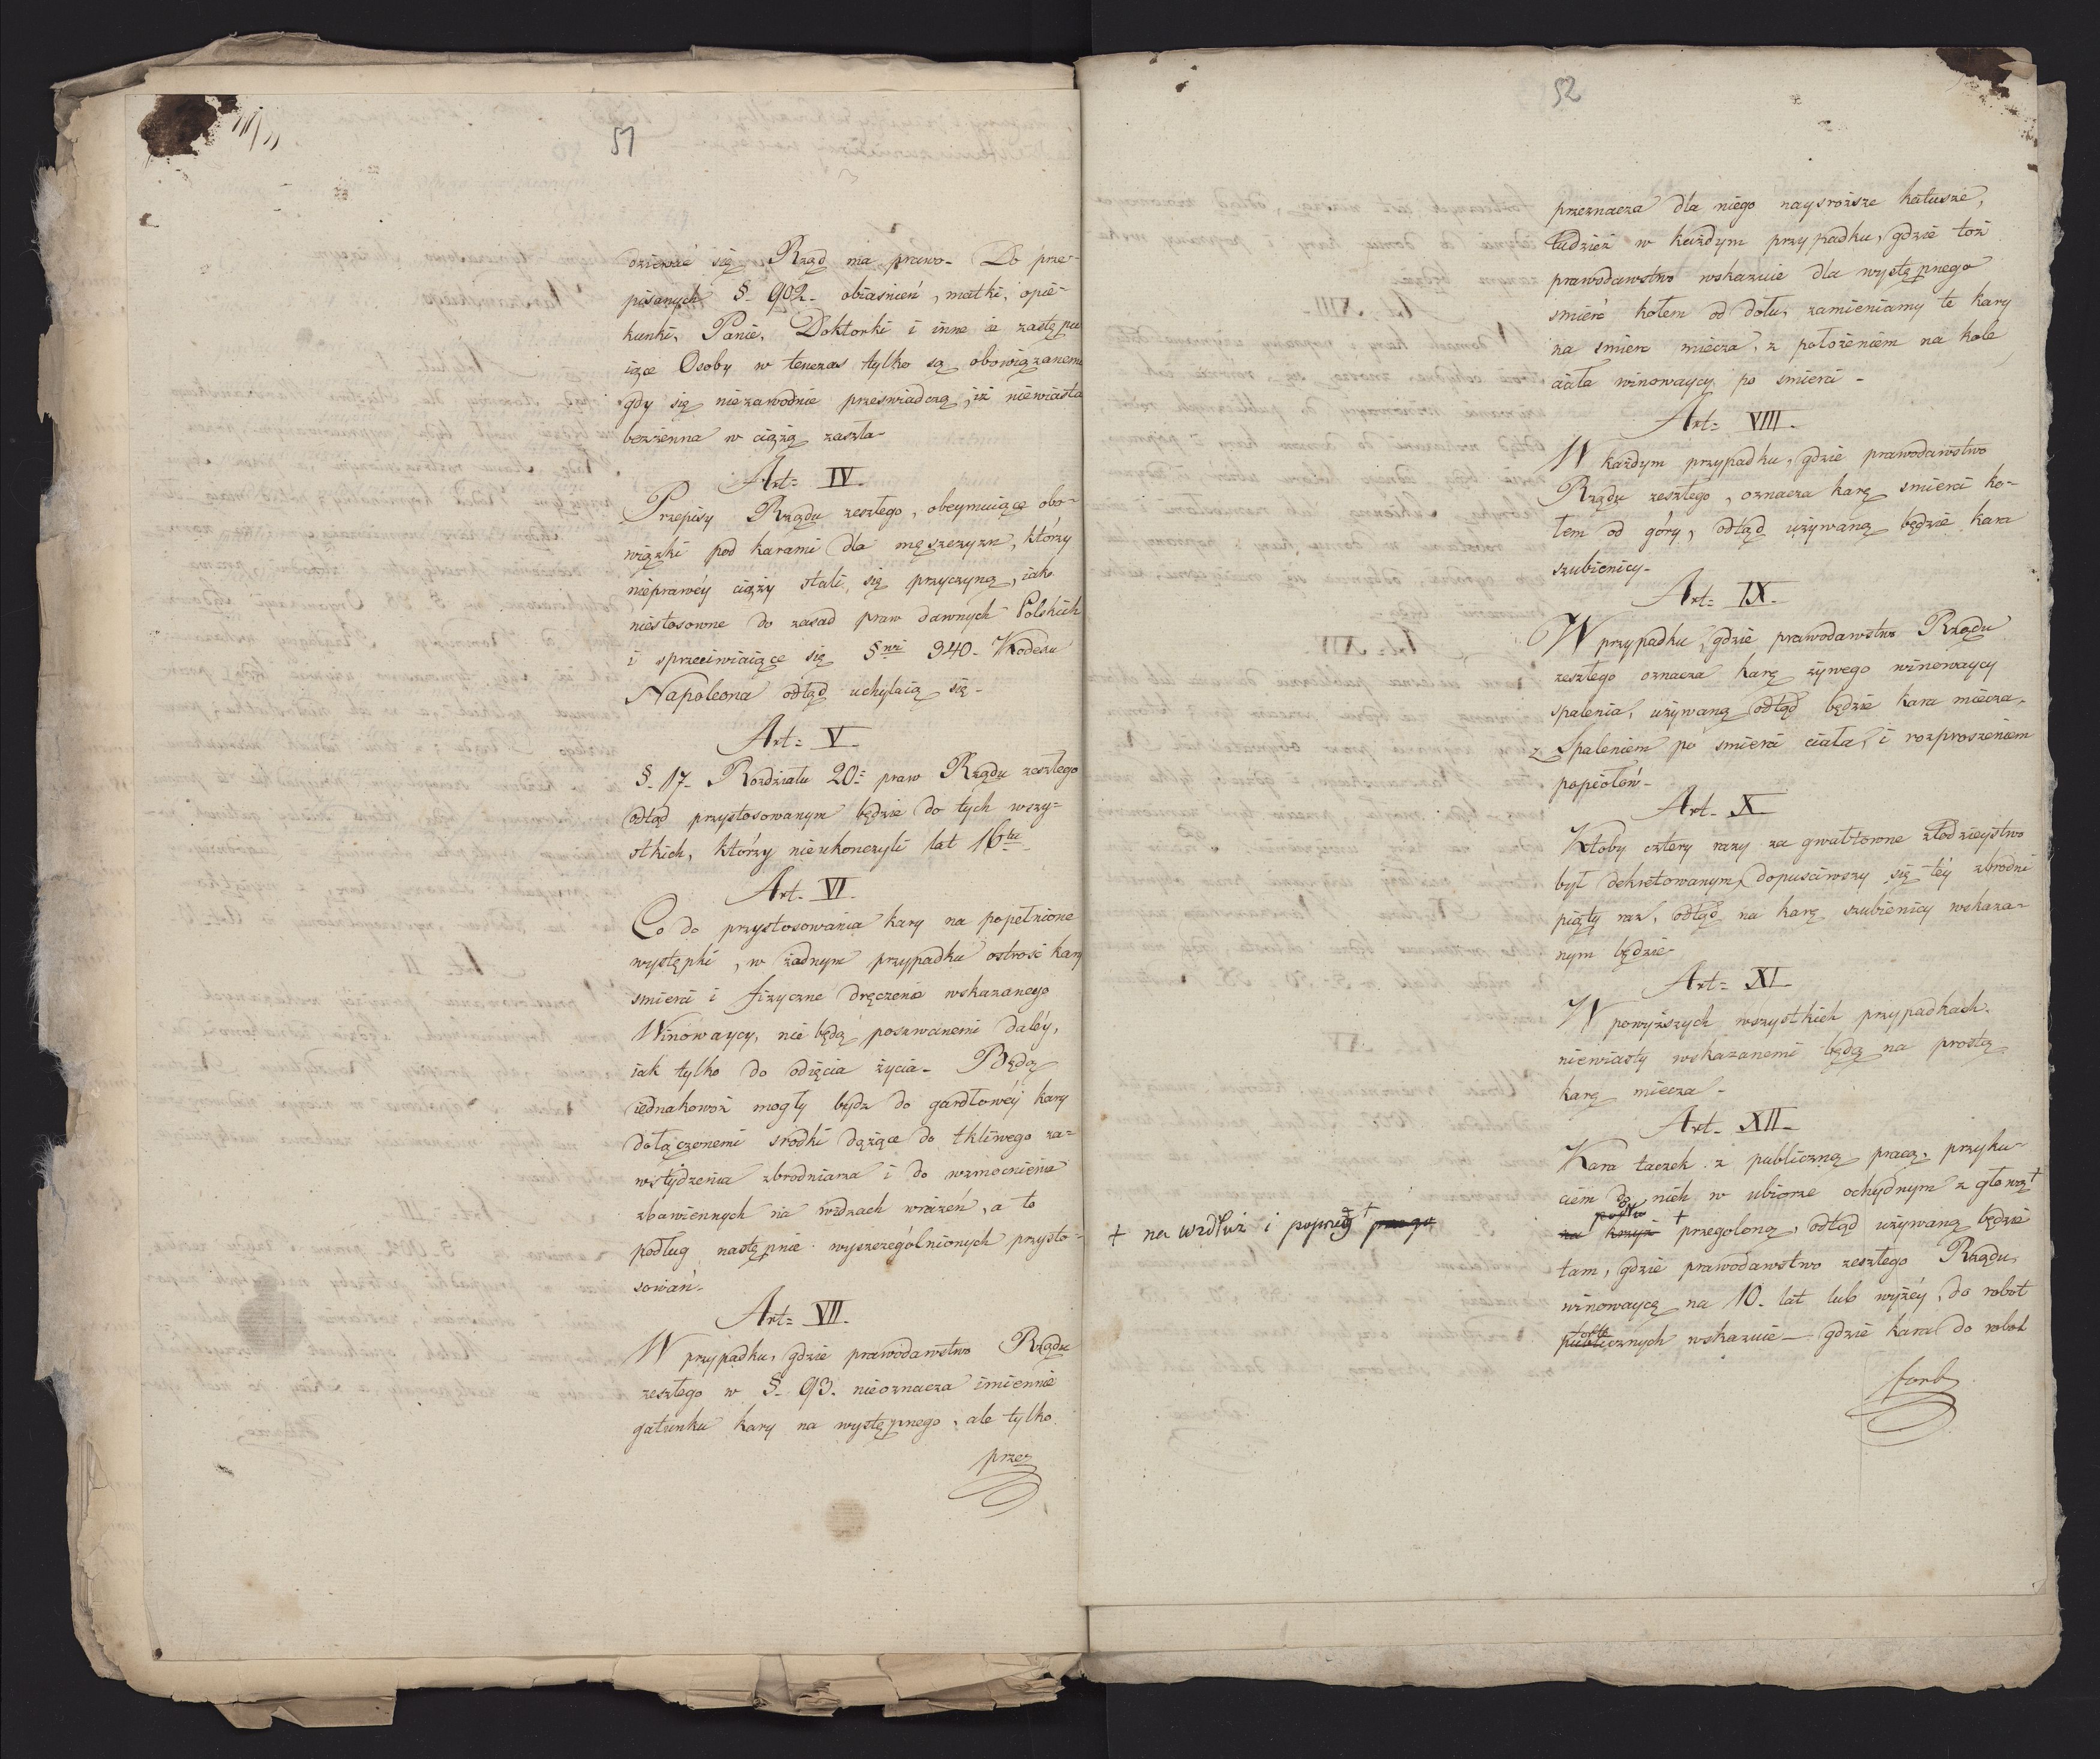 51
dziewać się Rząd ma prawo. Do prze-
pisanych §. 902. obiasnień, matki, opie-
kunki, Panie, Doktorki i inne ie zastępu
iące Osoby w tenczas tylko są obowiązanemi
gdy się niezawodnie przeswiadczą, iż niewiasta
bezżenna w ciążą zaszla.
Art: IV.
Przepisy Rządu zeszłego, obeymuiące obo-
wiązki pod karami dla męszczyzn, którzy
nieprawéy ciąży stali się przyczyną, iako
niestosowne do zasad praw dawnych Polskich
i sprzeciwiaiące się §wi 340. Kodexu
Napoleona odtąd uchylaią się.
Art: V.
§. 17. Rozdziału 20: praw Rządu zeszłego
odtąd przystosowanym będzie do tych wszy-
stkich, którzy nieukonczyli lat 16tu
Art. VI.
Co do przystosowania kary na popełnione
występki, w żadnym przypadku ostrość kary
smierci i fizyczne dręczenie wskazanego
Winowaycy, nie będą poszwanemi daléy,
iak tylko do odięcia życia. Będą
iednakowoż mogły bydz do gardłowéy kary
dołączonemi srodki dążące do tkliwego za-
wstydzenia zbrodniarza i do wzmocnienia
zbawiennych na widzach wrażeń, a to
podług następnie wyszczególnionych przysto-
sowań.
Art: VII.
W przypadku, gdzie prawodawstwo Rządu
zeszłego w §. 93. nieoznacza imiennie
gatunku kary na występnego, ale tylko
prze
52
przeznacza dla niego naysroższe katusze,
tudzież w każdym przypadku, gdzie toż
prawodawstwo wskazuie dla występnego
smierć kołem od dołu, zamieniamy te kary
na smierc miecza, z położeniem na kole
ciała winowaycy po smierci.
Art: VIII.
W każdym przypadku, gdzie prawodawstwo
Rządu zeszłego, oznacza karę smierci ko-
łem od góry, odtąd używaną będzie kara
szubienicy.
Art: IX.
W przypadku, gdzie prawodawstwo Rządu
zeszłego oznacza karę żywego winowaycy
spalenia, używaną odtąd będzie kara miecza,
z Spaleniem po smierci ciała, i rozproszeniem
popiołów.
Art. X.
Ktoby cztery razy za gwałtowne złodzieystwo
był dekretowanym, dopusciwszy się téy zbrodni
piąty raz, odtąd na karę szubienicy wskaza-
nym będzie
Art: XI.
W powyższych wszystkich przypadkach.
niewiasty wskazanemi będą na prostą
karę miecza.
Art. XII.
Kara taczek z publiczną pracą, przyku-
ciem do nich w ubiorze ochydnym z głową +
na krzyż + przegoloną, odtąd używaną będzie
+ na wzdłuż i poprzeg +
tam, gdzie prawodawstwo zeszłego Rządu
winowaycę na 10. lat lub wyżéy, do robot
publicznych wskazuie — gdzie kara do robot